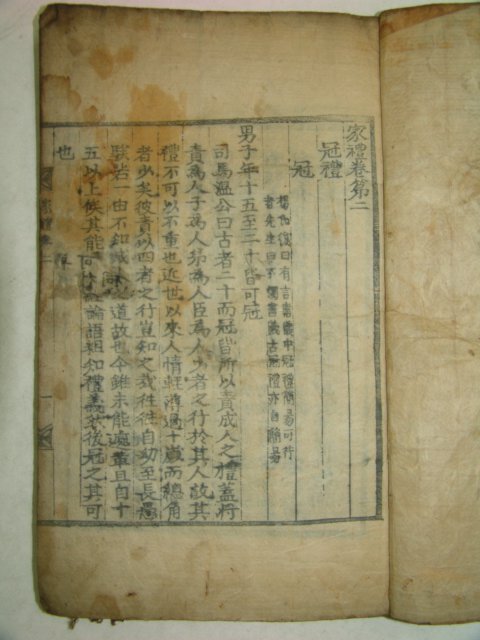 家禮卷第二
冠禮
冠
楊氏復曰有言書儀中冠禮簡易可行
者先生曰不獨書儀古冠禮亦自簡易
男子年十五至二十皆可冠
司馬溫公曰古者二十而冠皆所以責成人之禮蓋將
責為人子為人弟為人臣為人少者之行於其人故其
禮不可以不重也近世以來人情輕薄過十歲而總角
者少矣彼責以四者之行豈知之哉徃徃自幼至長愚
騃若一由不知成人之道故也今雖未能遽革且自十
五以上俟其能孝經論語粗知禮義然後冠之其可
也